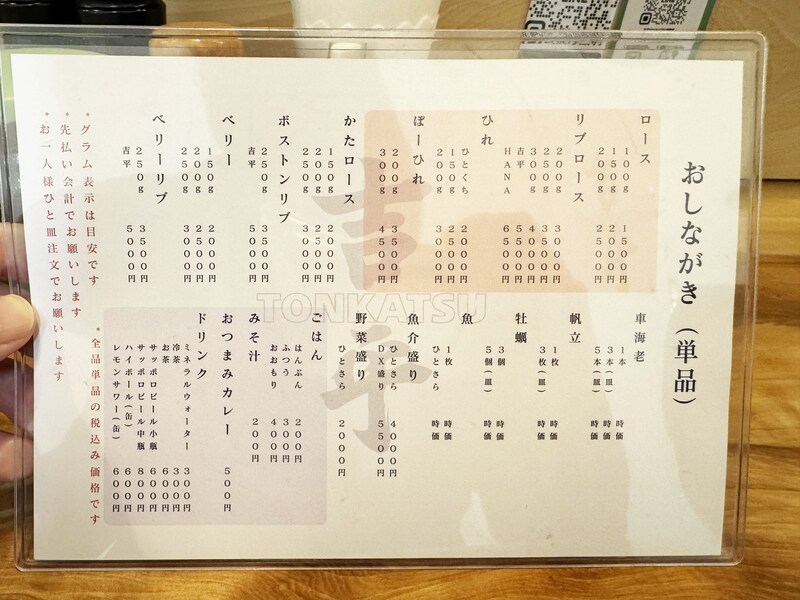 おしながき（単品）
ロース
100g 1500円
150g 2000円
200g 2500円
リブロース
200g 3000円
250g 3500円
300g 4500円
吉平 5500円
HANA 6500円
ひれ
ひとくち 2000円
150g 2500円
200g 3000円
ぽーひれ
200g 3500円
300g 4500円
かたロース
150g 2000円
200g 2500円
250g 3000円
ボストンリブ
250g 3500円
吉平 5000円
ベリー
150g 2000円
200g 2500円
250g 3000円
ベリーリブ
250g 3500円
吉平 5000円
車海老
1本 時価
3本（皿） 時価
5本（皿） 時価
帆立
1枚 時価
3枚（皿） 時価
牡蠣
3個 時価
5個（皿） 時価
魚
1枚 時価
ひとさら 時価
魚介盛り
ひとさら 4000円
DX盛り 5500円
野菜盛り
ひとさら 2000円
ごはん
はんぶん 200円
ふつう 300円
おおもり 400円
みそ汁 200円
おつまみカレー 500円
ドリンク
ミネラルウォーター 300円
冷茶 300円
お茶 600円
サッポロビール小瓶 600円
サッポロビール中瓶 800円
ハイボール（缶） 600円
レモンサワー（缶） 600円
＊全品単品の税込み価格です
＊グラム表示は目安です
＊先払い会計でお願いします
＊お一人様ひと皿注文でお願いします
吉平
TONKATSU